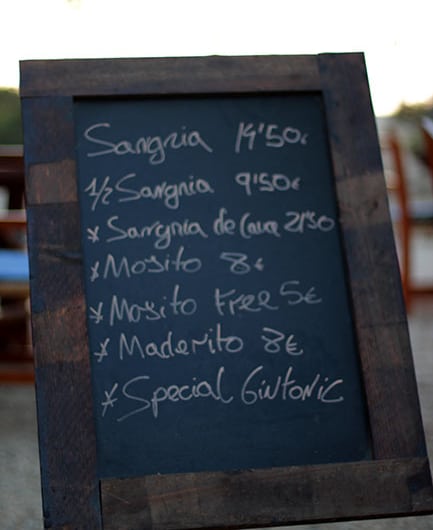 Sangria 19'50€
1/2 Sangria 9'50€
* Sangria de Cava 21'50
* Mojito 8€
* Mojito Free 5€
* Maderito 8€
* Special Gintonic